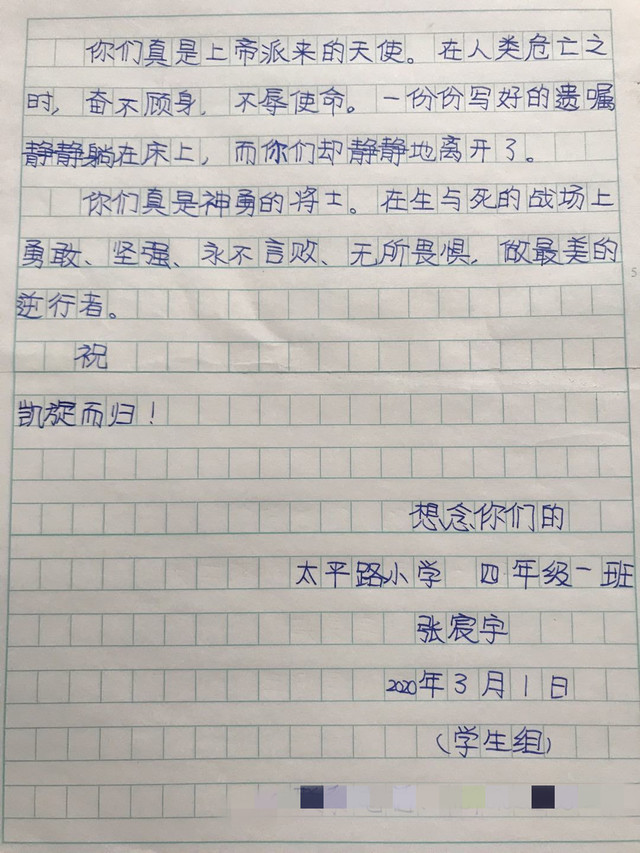 你们真是上帝派来的天使。在人类危亡之
时，奋不顾身，不辱使命。一份份写好的遗嘱
静静躺在床上，而你们却静静地离开了。
你们真是神勇的将士。在生与死的战场上
勇敢、坚强、永不言败、无所畏惧，做最美的
逆行者。
祝
凯旋而归！
想念你们的
太平路小学 四年级一班
张宸宇
2020年3月1日
（学生组）